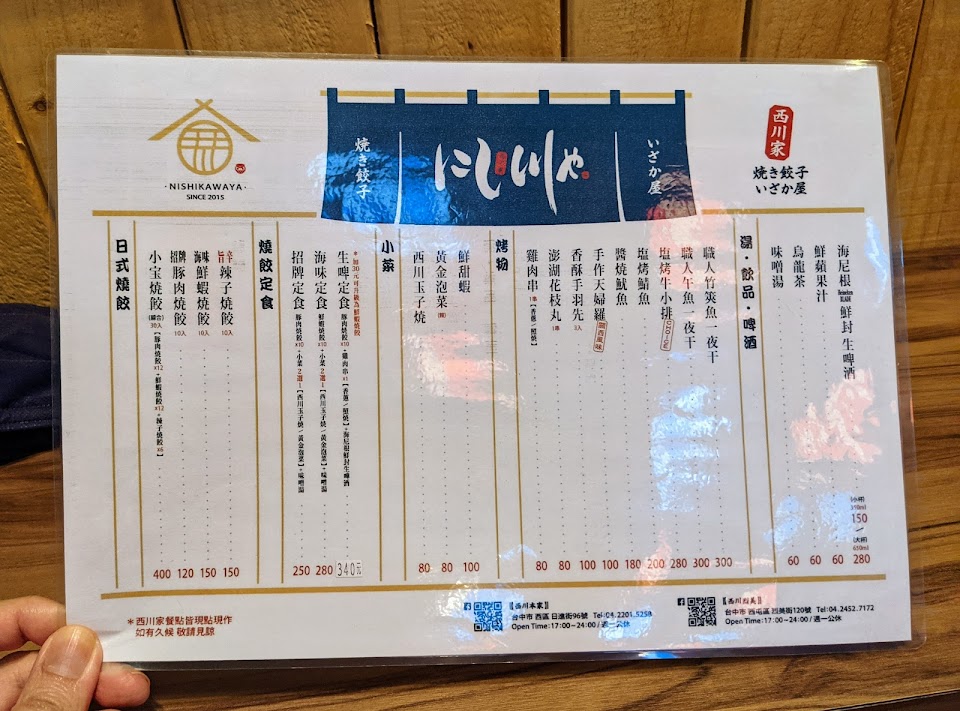 NISHIKAWAYA
SINCE 2015
焼き餃子
にし川や
いざか屋
西川家
焼き餃子
いざか屋
日式燒餃
旨辛 辣子燒餃 10入 150
海味 鮮蝦燒餃 10入 150
招牌 豚肉燒餃 10入 120
小宝燒餃 (綜合) 30入 【豚肉燒餃x12+鮮蝦燒餃x12+辣子燒餃x6】 400
燒餃定食
*加30元可升級為鮮蝦燒餃
生啤定食 豚肉燒餃x10+雞肉串x1【香蔥/照燒】+海尼根鮮封生啤酒 340元
海味定食 鮮蝦燒餃x10+小菜2選1【西川玉子燒/黃金泡菜】+味噌湯 280
招牌定食 豚肉燒餃x10+小菜2選1【西川玉子燒/黃金泡菜】+味噌湯 250
小菜
鮮甜蝦 100
黃金泡菜 80
西川玉子燒 80
烤物
職人竹筴魚一夜干 300
職人午魚一夜干 300
塩烤牛小排 CHOICE 280
塩烤鯖魚 200
醬燒魷魚 180
手作天婦羅 關西風味 100
香酥手羽先 3入 100
澎湖花枝丸 1串 80
雞肉串 1串【香蔥/照燒】 80
湯·飲品·啤酒
海尼根 Heineken 鮮封生啤酒 (小杯) 310ml 150 / (大杯) 650ml 280
鮮蘋果汁 60
烏龍茶 60
味噌湯 60
*西川家餐點皆現點現作
如有久候 敬請見諒
【西川本家】
台中市 西區 日進街96號 Tel:04.2201.5258
Open Time:17:00~24:00/週一公休
【西川烈美】
台中市 西屯區 烈美街120號 Tel:04.2452.7172
Open Time:17:00~24:00/週一公休